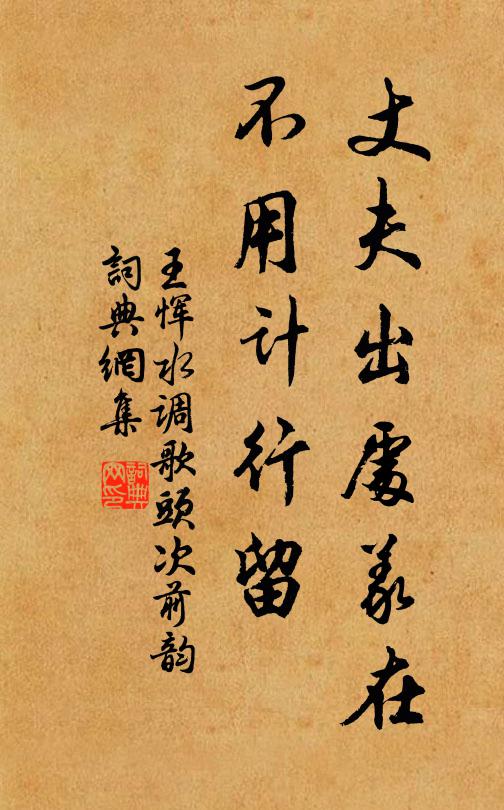 丈夫出處義在
不用计行留
王恽水调歌頭次前韵
詞典網集
詞典網印